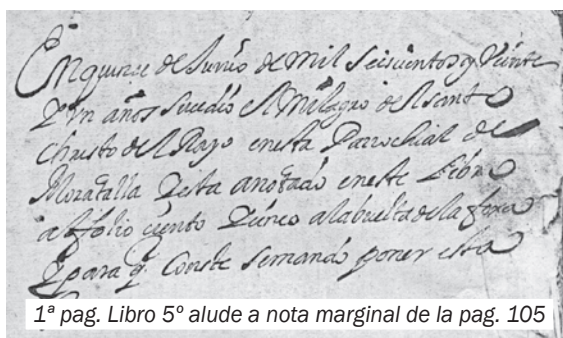 En quince de Junio de mil seiscientos y Veinte
y Un años sucedio el Milagro del sant
Christo del Rayo en esta Parrochial de
Moratalla y esta anotado en este Libro
al folio ciento y cinco a la buelta de la foxa
y para q. Conste se mando poner esta
1ª pag. Libro 5º alude a nota marginal de la pag. 105